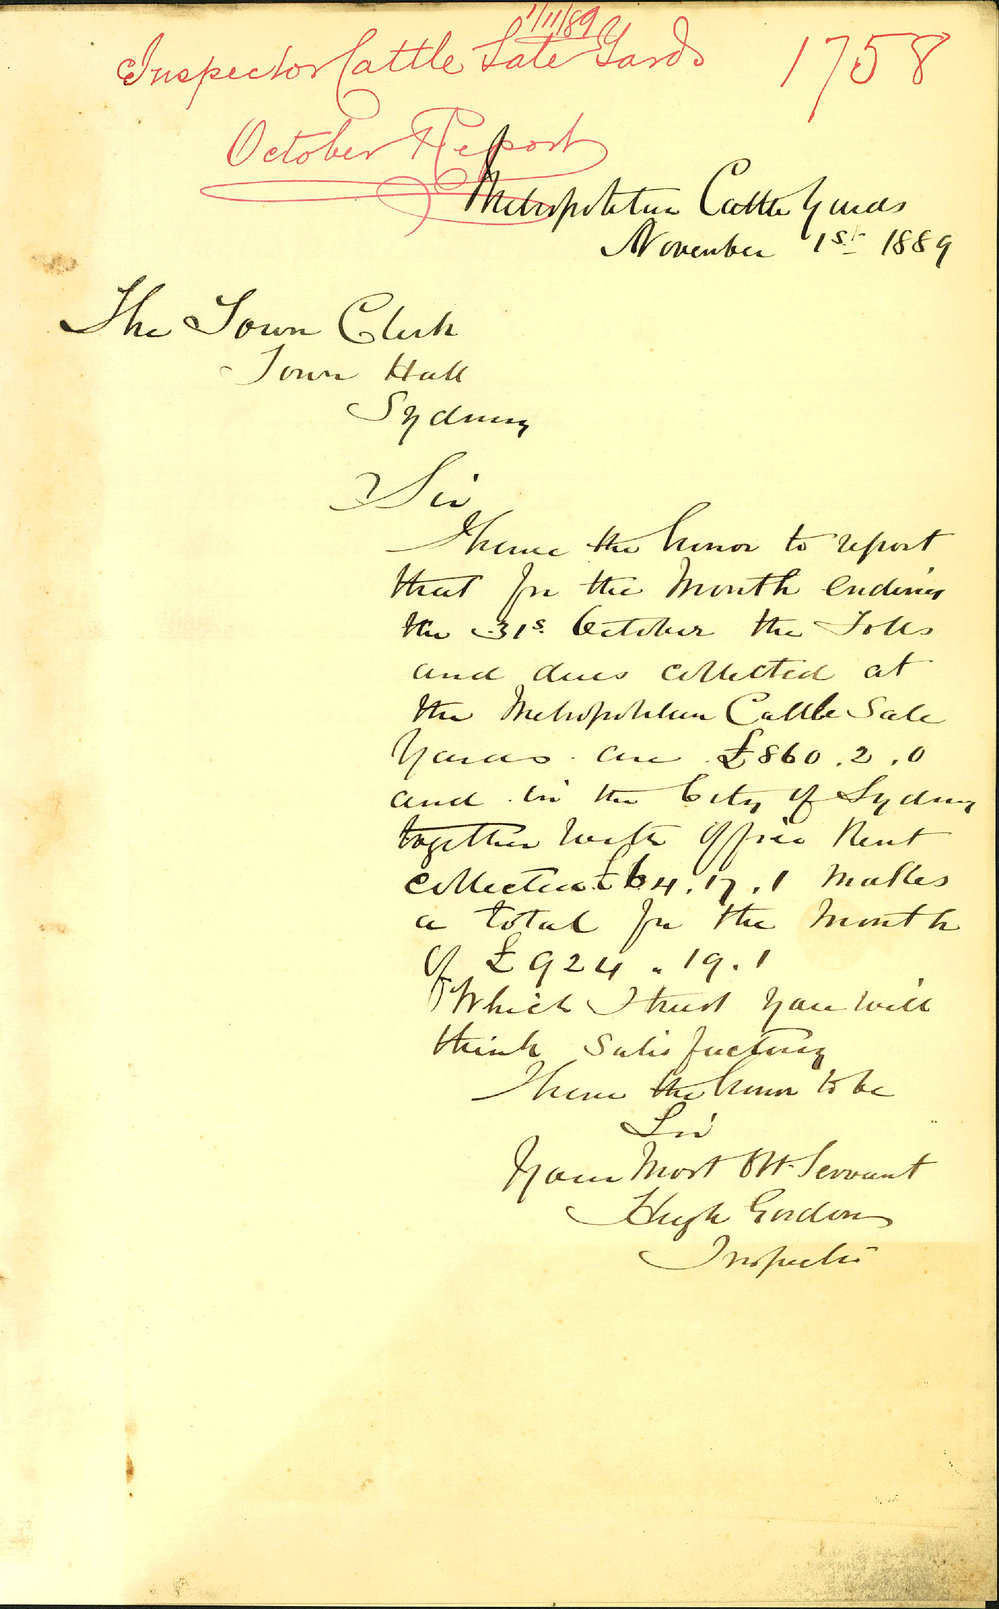 1/11/89
Inspector Cattle Sale Yards 1758
October Report
Metropolitan Cattle Yards
November 1st 1889
The Town Clerk
Town Hall
Sydney
Sir
I have the honor to report
that for the Month ending
the 31s. October the Tolls
and dues collected at
the Metropolitan Cattle Sale
Yards are £860.2.0
and in the City of Sydney
together with Office Rent
collected £64.17.1 makes
a total for the Month
of £924.19.1
Which I trust you will
think satisfactory
I have the honor to be
Sir
Your Most Obt. Servant
Hugh Gordon
Inspector